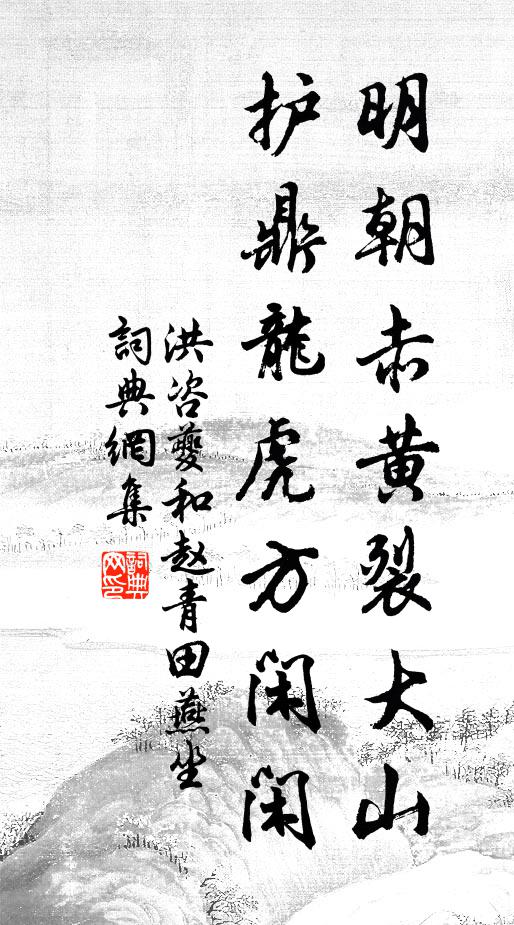 明朝赤黄裂大山
护鼎龍虎方闲闲
洪咨夔和赵青田燕坐
詞典網集
詞典網印